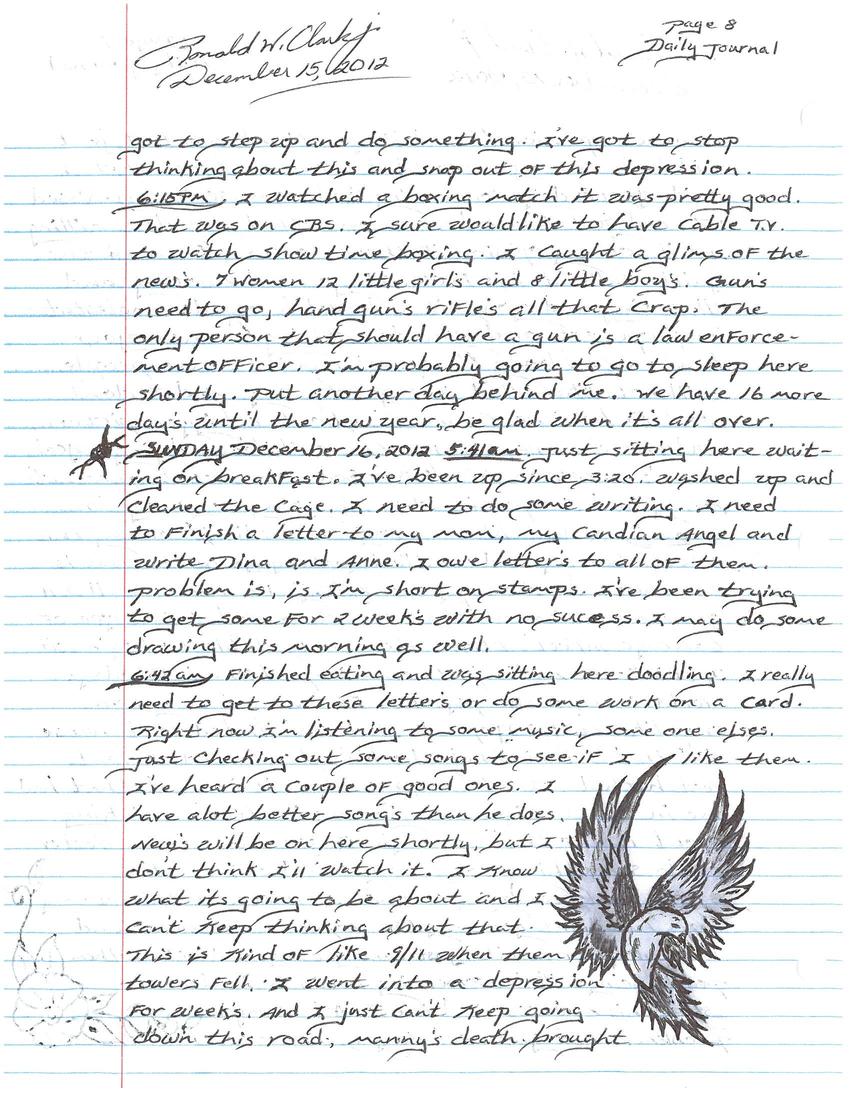 Ronald W. Clark jr
December 15, 2012
Page 8
Daily Journal
got to step up and do something. I've got to stop
thinking about this and snap out of this depression.
6:15PM, I watched a boxing match it was pretty good.
That was on CBS. I sure would like to have Cable T.V.
to watch show time boxing. I Caught a glims of the
new's. 7 Women 12 little girl's and 8 little boy's. Gun's
need to go, hand gun's rifle's all that Crap. The
only person that should have a gun is a law enforce-
ment officer. I'm probably going to go to sleep here
shortly. Put another day behind me. We have 16 more
day's until the new year, be glad when it's all over.
SUNDAY December 16, 2012 5:41am. Just sitting here wait-
ing on breakfast. I've been up since 3:20. washed up and
Cleaned the Cage. I need to do some writing. I need
to Finish a letter to my mom, my Candian Angel and
write Dina and Anne. I owe letter's to all of them.
problem is, is I'm short on stamps. I've been trying
to get some For 2 week's with no sucess. I may do some
drawing this morning as well.
6:42am Finished eating and was sitting here doodling. I really
need to get to these letter's or do some work on a Card.
Right now I'm listening to some music, some one elses.
Just Checking out some songs to see if I like them.
I've heard a Couple of good ones. I
have alot better song's than he does.
New's will be on here shortly, but I
don't think I'll watch it. I Know
what its going to be about and I
Can't Keep thinking about that.
This is Kind of like 9/11 when them
towers Fell. I went into a depression
For week's. And I just Can't Keep going
down this road, manny's death brought